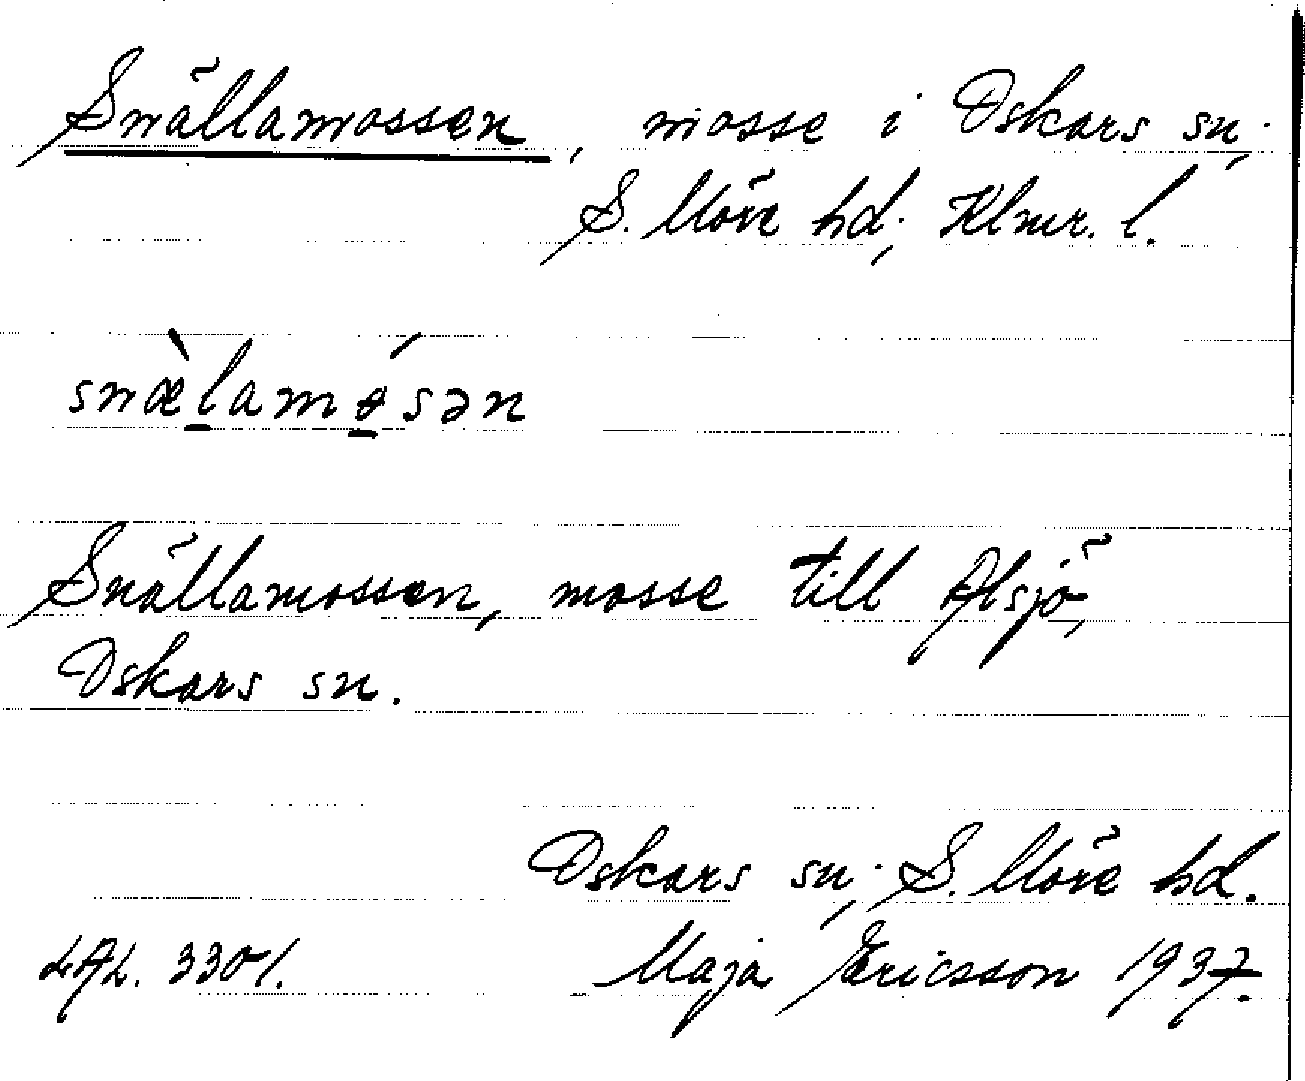 Snällamossen, mosse i Oskars sn,
S. Möre hd, Klmr. l.
snæ̀lamɵ́sən
Snällamossen, mosse till Alsjö,
Oskars sn.
Oskars sn, S. Möre hd.
LAL. 3301. Maja Ericsson 1937.